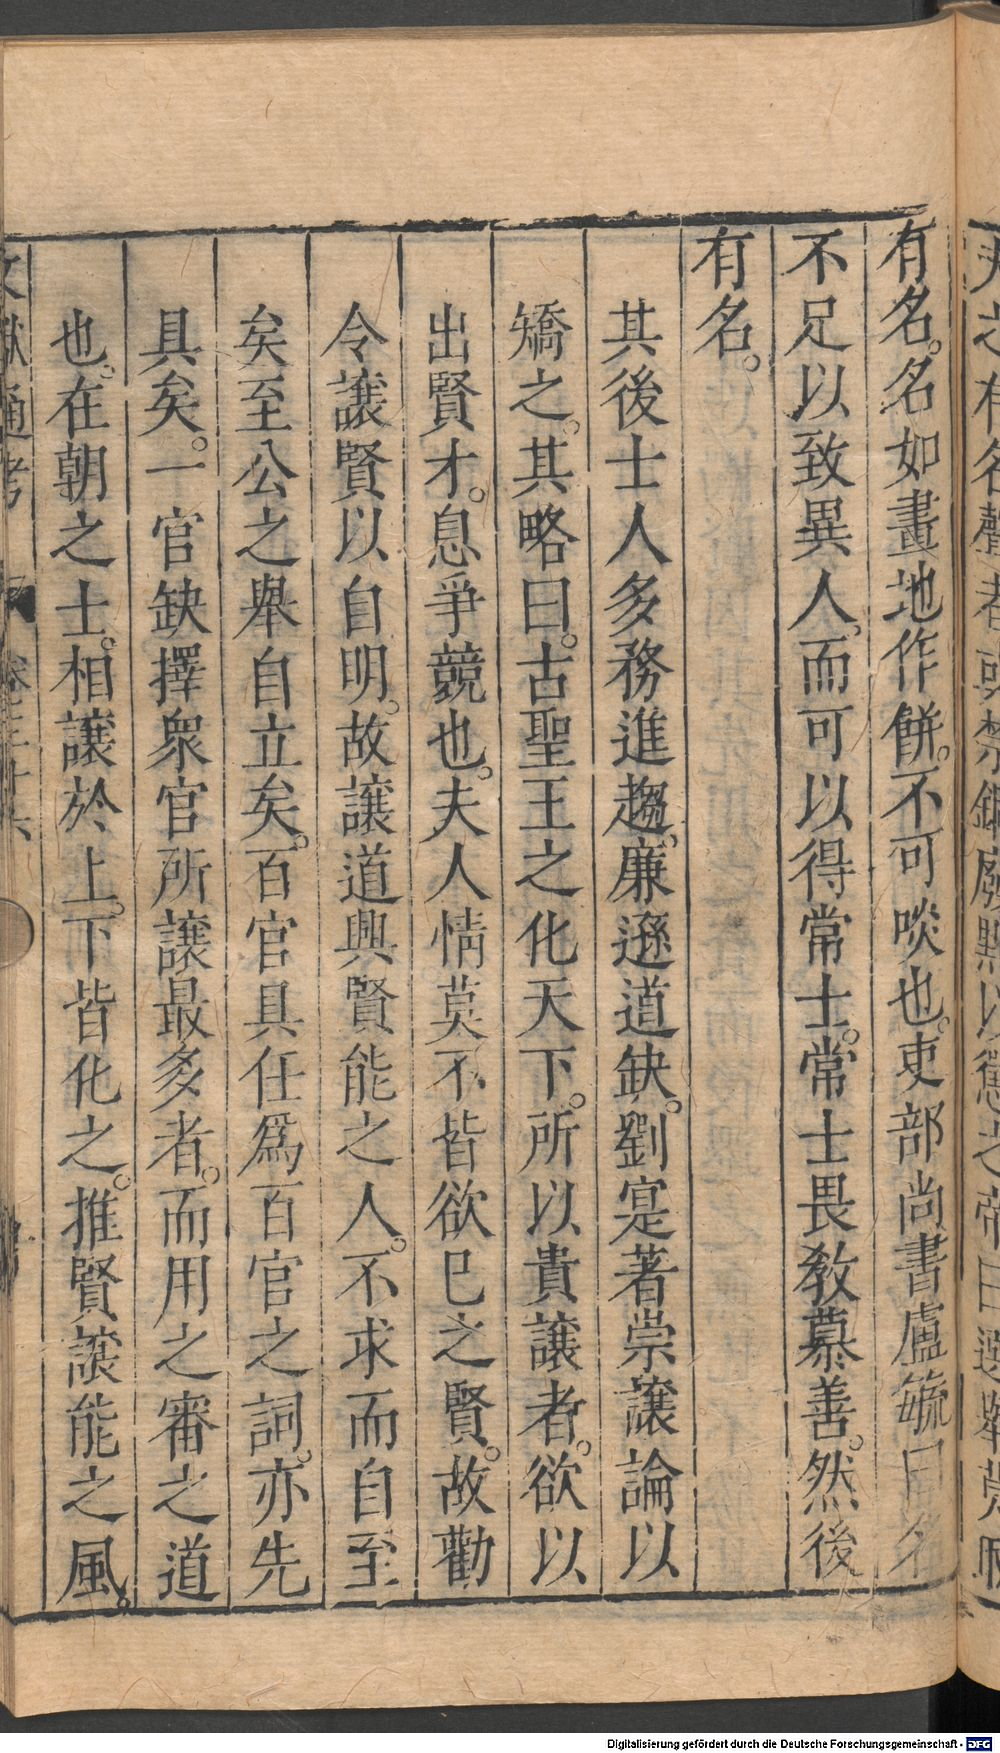 有名。名如畫地作餅。不可啖也。吏部尚書盧毓曰名
不足以致異人。而可以得常士。常士畏教慕善。然後
有名。
其後士人多務進趨。廉遜道缺。劉寔著崇讓論以
矯之。其略曰。古聖王之化天下。所以貴讓者。欲以
出賢才。息爭競也。夫人情莫不皆欲已之賢。故勸
令讓賢以自明。故讓道興賢能之人。不求而自至
矣至公之舉自立矣。百官具任爲百官之詞。亦先
具矣。一官缺擇衆官所讓最多者。而用之審之道
也。在朝之士。相讓於上。下皆化之。推賢讓能之風。
文獻通考 卷三十六
Digitalisierung gefördert durch die Deutsche Forschungsgemeinschaft - DFG